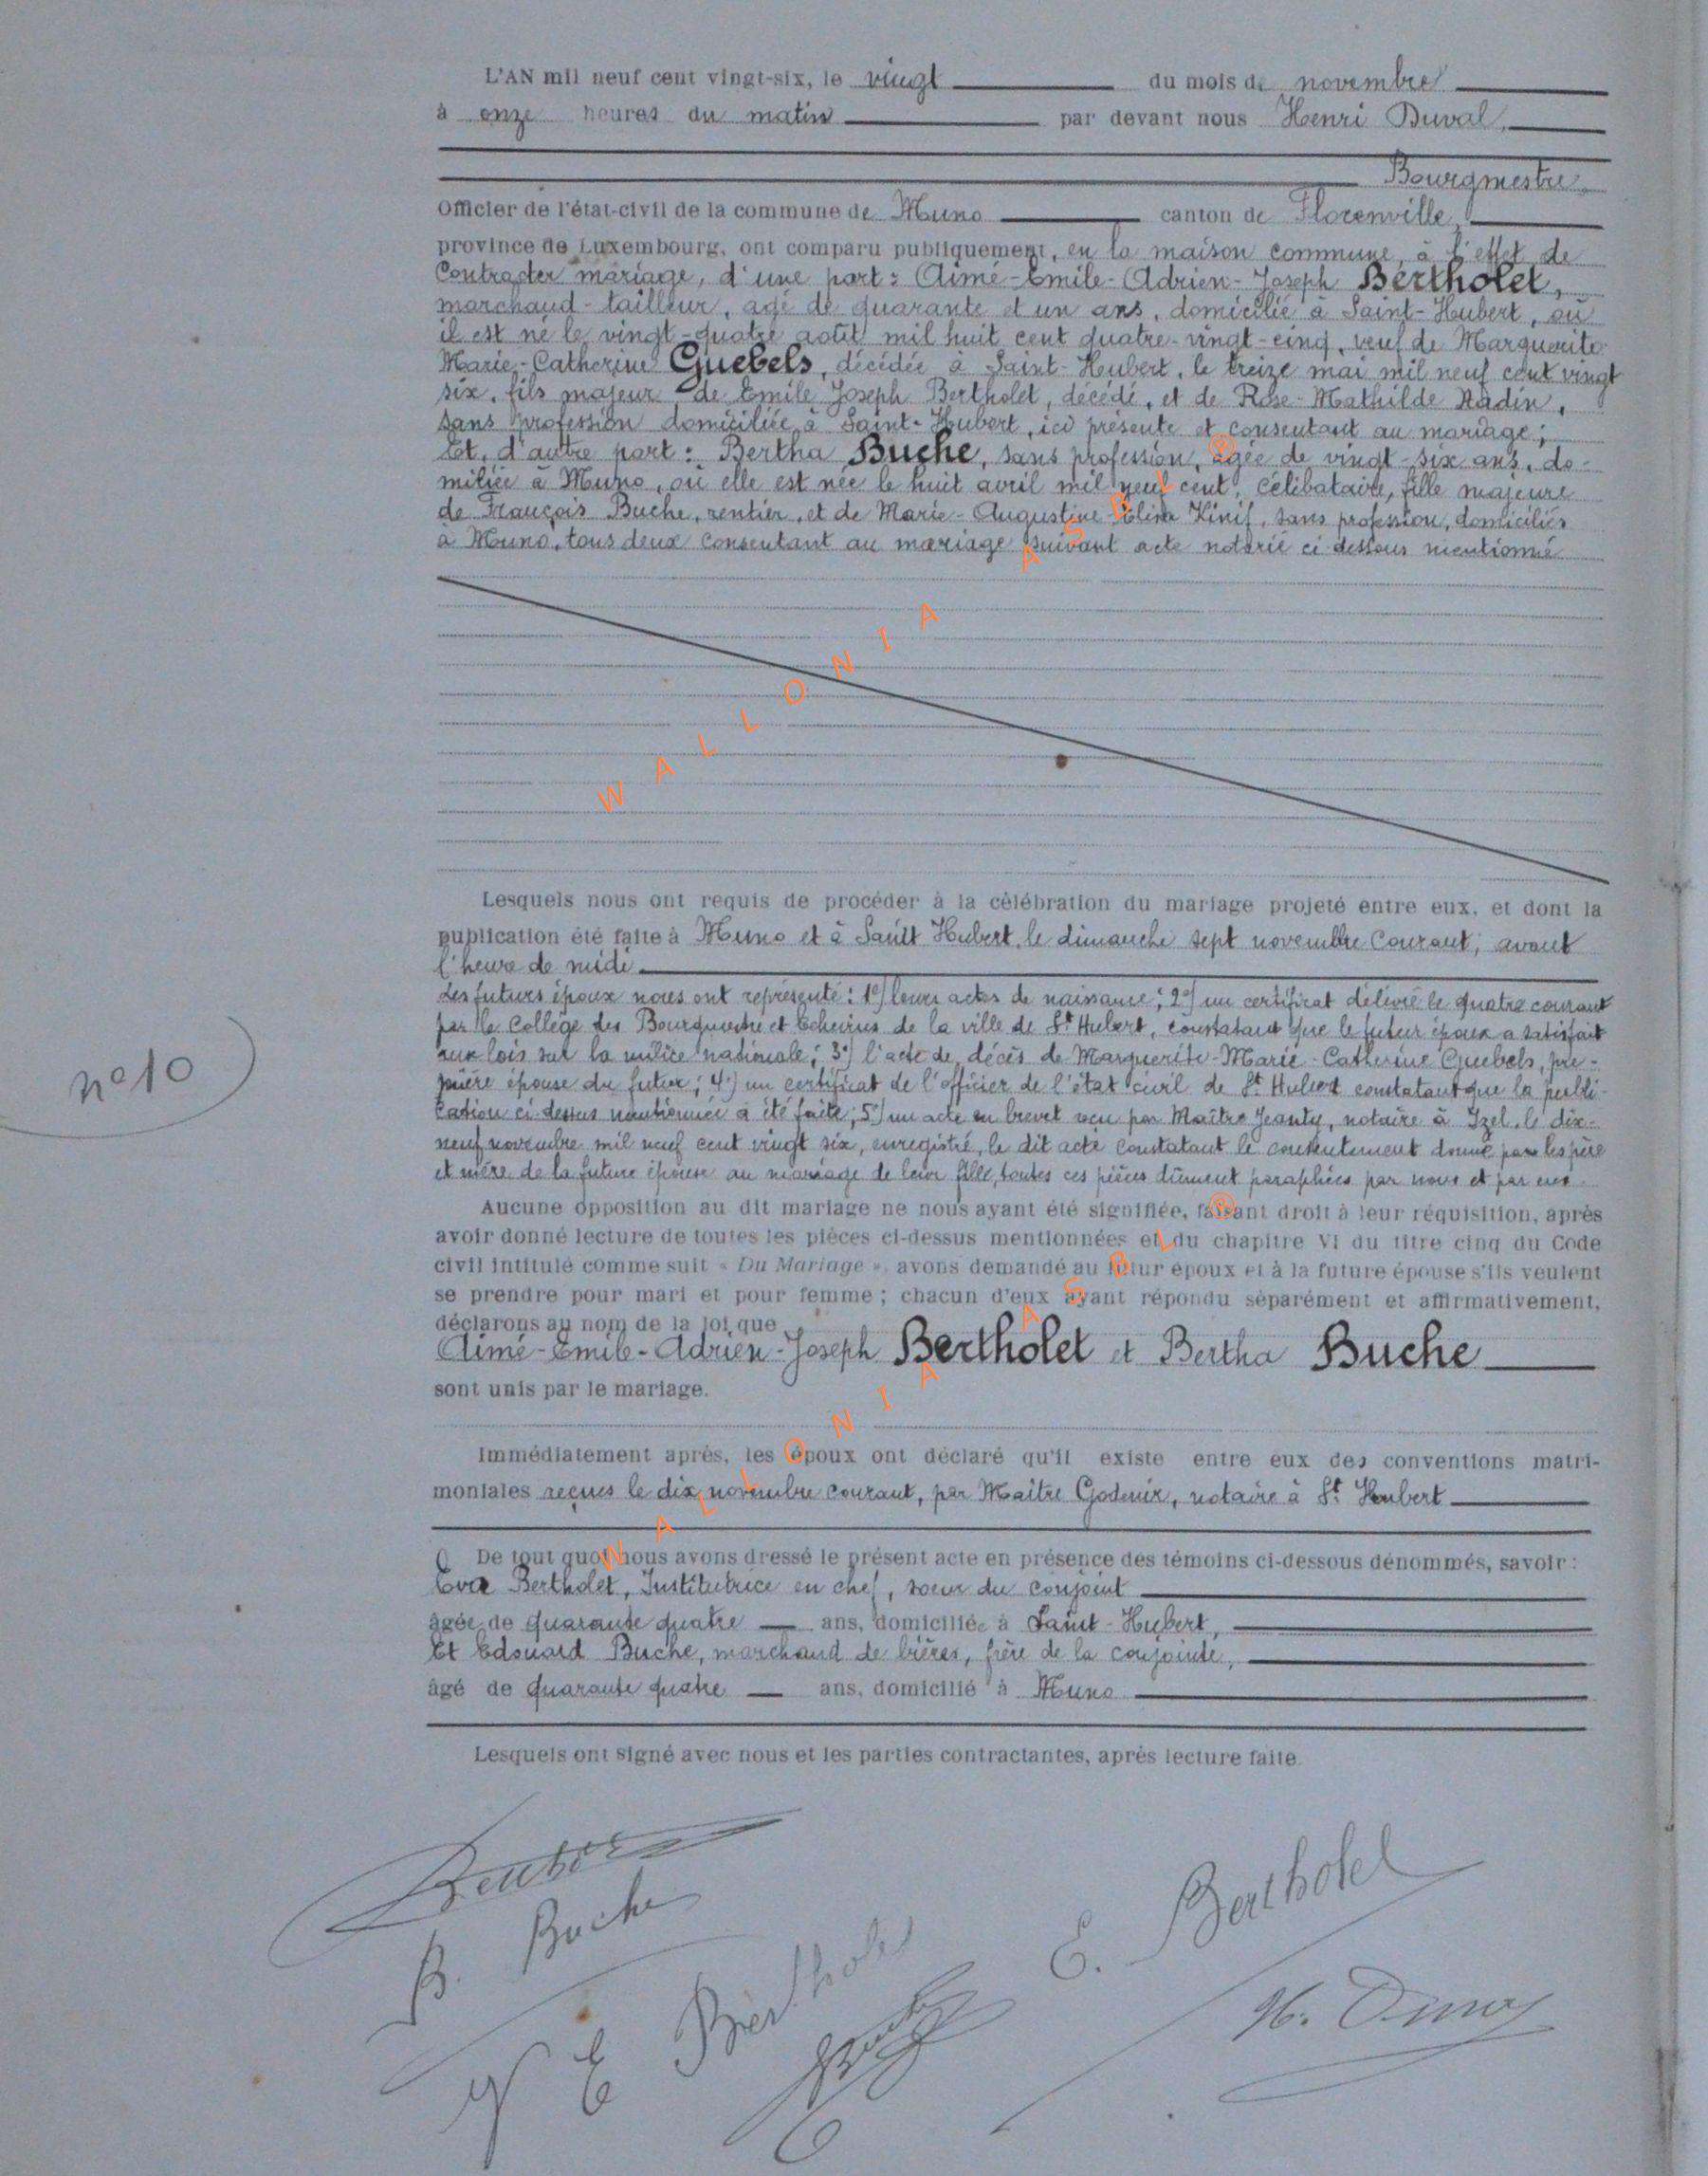 L'AN mil neuf cent vingt-six, le vingt du mois de novembre
à onze heures du matin par devant nous Henri Duval,
Bourgmestre,
Officier de l'état-civil de la commune de Muno canton de Florenville,
province de Luxembourg, ont comparu publiquement, en la maison commune, à l'effet de
Contracter mariage, d'une part : Aimé-Emile-Adrien-Joseph Bertholet,
marchand-tailleur, agé de quarante et un ans, domicilié à Saint-Hubert, où
il est né le vingt-quatre août mil huit cent quatre-vingt-cinq, veuf de Marguerite-
Marie-Catherine Guebels, décédée à Saint-Hubert, le treize mai mil neuf cent vingt
six, fils majeur de Emile Joseph Bertholet, décédé, et de Rose-Mathilde Nadin,
sans profession domiciliée à Saint-Hubert, ici présente et consentant au mariage ;
Et, d'autre part : Bertha Buche, sans profession, agée de vingt-six ans, do-
miliée à Muno, où elle est née le huit avril mil neuf cent, célibataire, fille majeure
de François Buche, rentier, et de Marie-Augustine-Elina Kinif, sans profession, domiciliés
à Muno, tous deux consentant au mariage suivant acte notarié ci dessous mentionné
Lesquels nous ont requis de procéder à la célébration du mariage projeté entre eux, et dont la
publication été faite à Muno et à Saint Hubert, le dimanche sept novembre Courant, avant
l'heure de midi
Les futurs époux nous ont représenté : 1°) leurs actes de naissance ; 2°) un certificat délivré le quatre courant
par le Collège des Bourgmestre et Echevins de la ville de St Hubert, constatant que le futur époux a satisfait
aux lois sur la milice nationale ; 3°) l'acte de décès de Marguerite-Marie-Catherine Guebels, pre-
mière épouse du futur ; 4°) un certificat de l'officier de l'état civil de St Hubert constatant que la publi-
cation ci-dessus mentionnée a été faite ; 5°) un acte en brevet reçu par Maître Jeanty, notaire à Izel, le dix-
neuf novembre mil neuf cent vingt six, enregistré, le dit acte constatant le consentement donné par les père
et mère de la future épouse au mariage de leur fille, toutes ces pièces dûment paraphées par nous et par eux.
Aucune opposition au dit mariage ne nous ayant été signifiée, faisant droit à leur réquisition, après
avoir donné lecture de toutes les pièces ci-dessus mentionnées et du chapitre VI du titre cinq du Code
civil intitulé comme suit « Du Mariage », avons demandé au futur époux et à la future épouse s'ils veulent
se prendre pour mari et pour femme ; chacun d'eux ayant répondu séparément et affirmativement,
déclarons au nom de la loi que
Aimé-Emile-Adrien-Joseph Bertholet et Bertha Buche
sont unis par le mariage.
Immédiatement après, les époux ont déclaré qu'il existe entre eux des conventions matri-
moniales reçues le dix novembre courant, par Maître Godenir, notaire à St Hubert
De tout quoi nous avons dressé le présent acte en présence des témoins ci-dessous dénommés, savoir :
Eva Bertholet, Institutrice en chef, sœur du conjoint
âgée de quarante quatre ans, domiciliée à Saint-Hubert,
Et Edouard Buche, marchand de bières, frère de la conjointe,
âgé de quarante quatre ans, domicilié à Muno
Lesquels ont signé avec nous et les parties contractantes, après lecture faite.
n° 10
B. Buche
E. Bertholet
E Bertholet
H. Duval
WALLONIA ASBL ®
WALLONIA ASBL ®